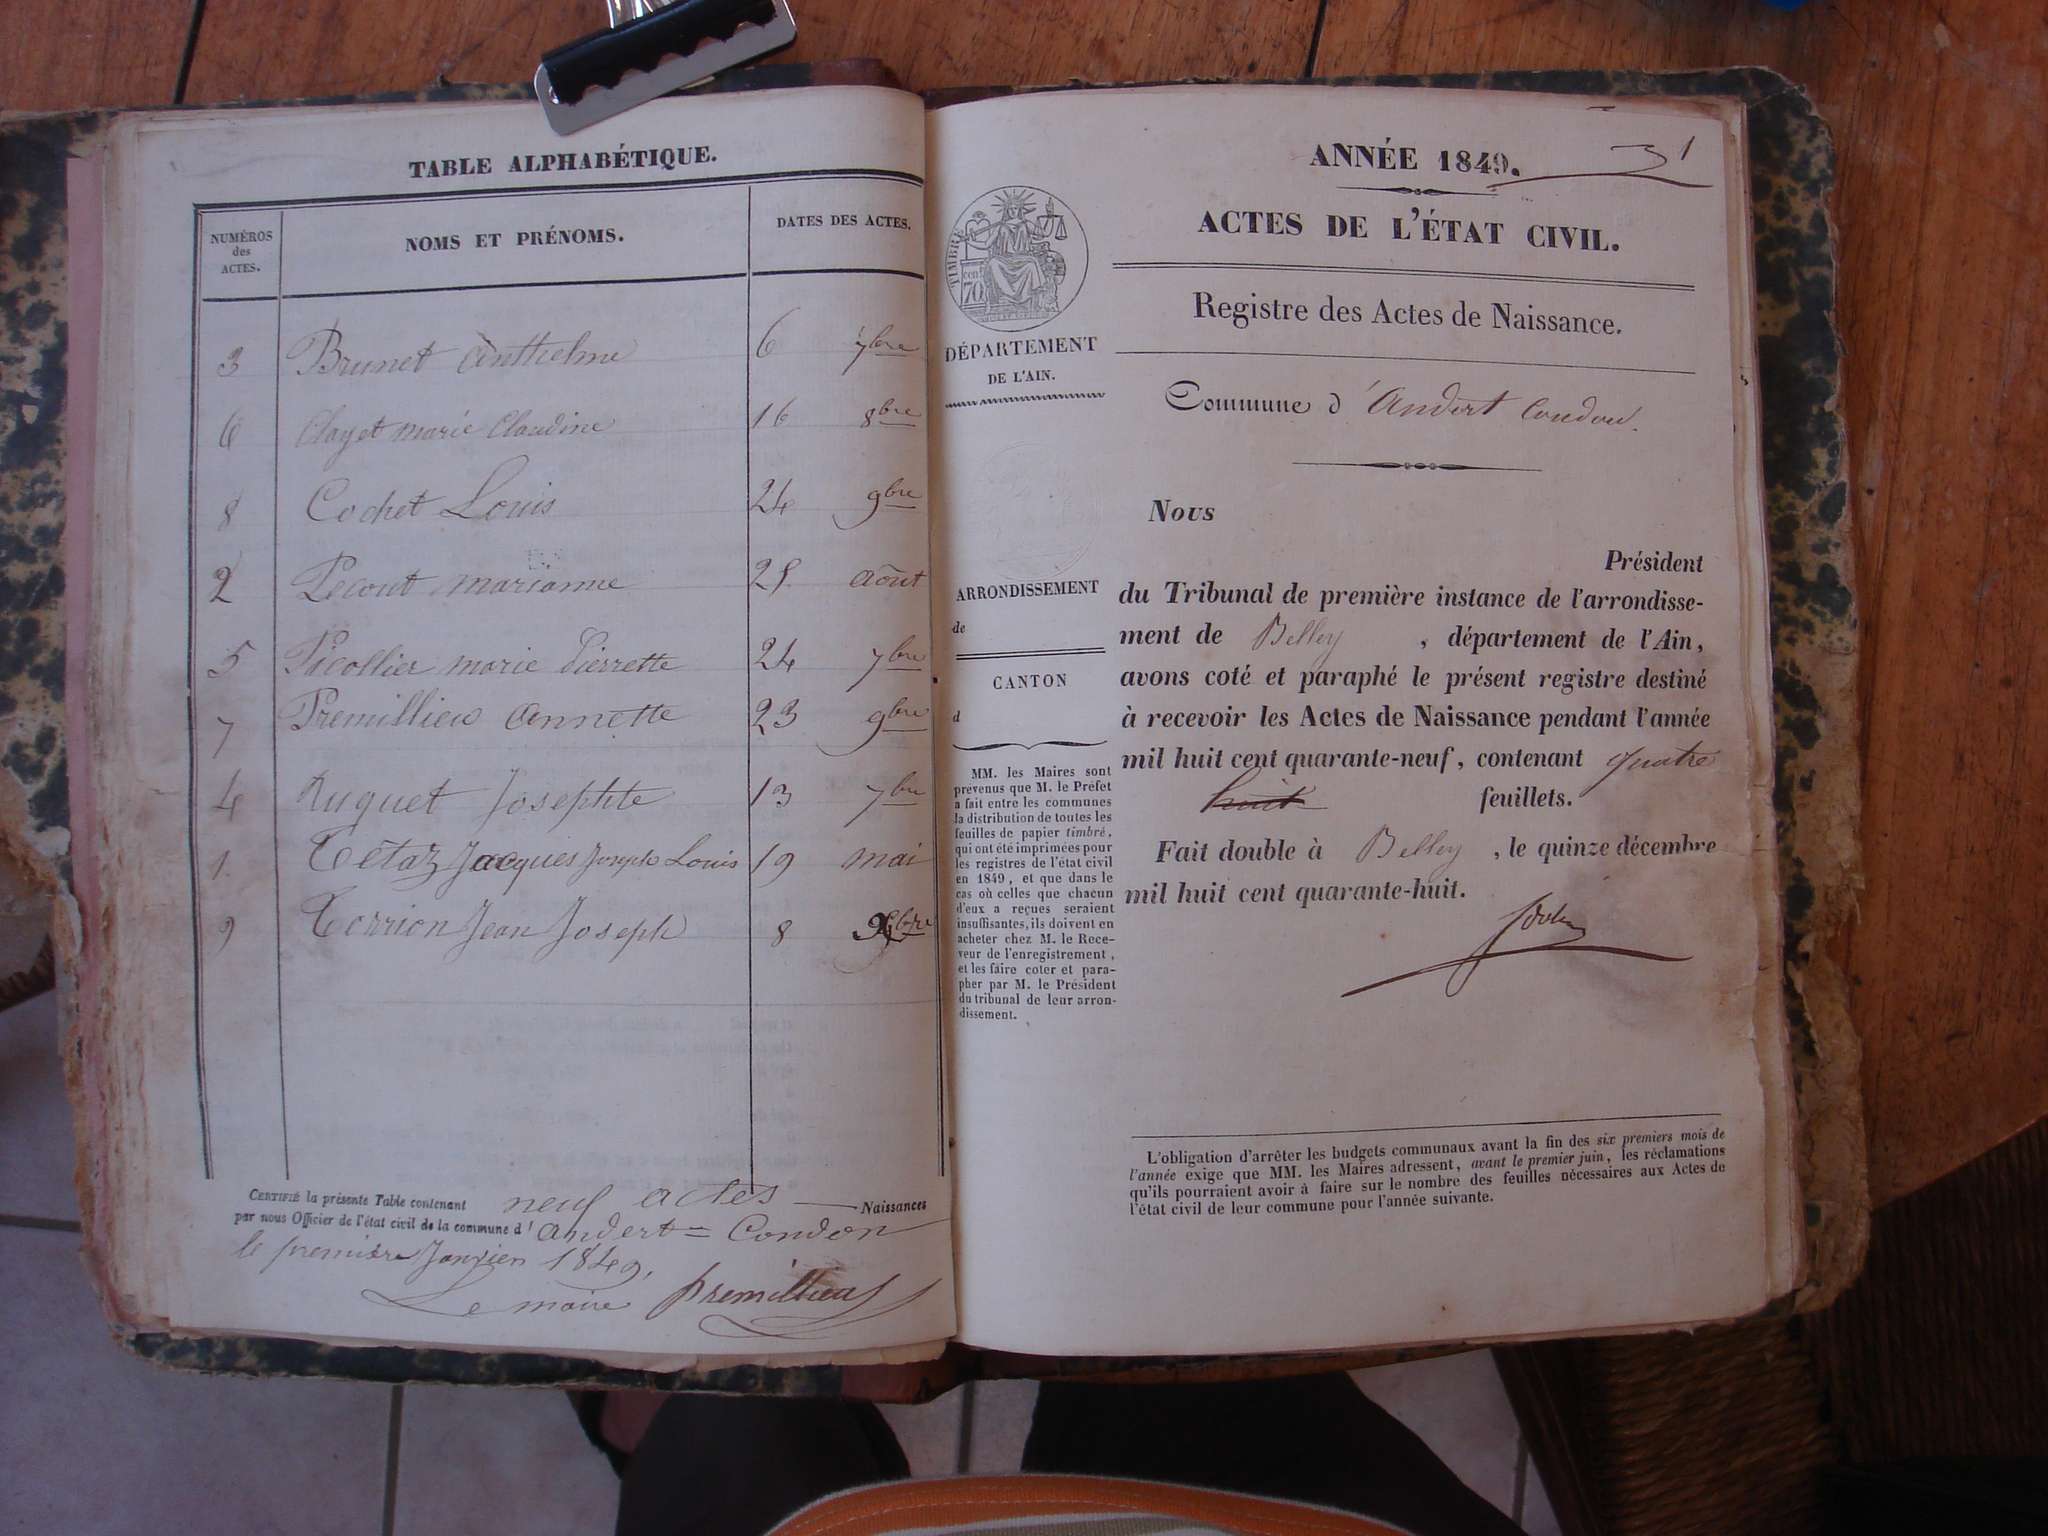 TABLE ALPHABÉTIQUE.
NUMÉROS
des
ACTES.
NOMS ET PRÉNOMS.
DATES DES ACTES.
3 Brunet Anthelme 6 7bre
6 Clayet marie Claudine 16 8bre
8 Cochet Louis 24 9bre
2 Pecout marianne 25 Août
5 Picollier marie Pierrette 24 7bre
7 Premillieu Annette 23 9bre
4 Ruguet Josephte 13 7bre
1. Tétaz Jacques Joseph Louis 19 mai
9 Terrion Jean Joseph 8
CERTIFIÉ la présente Table contenant neuf actes Naissances
par nous Officier de l'état civil de la commune d'Andert = Condon
le premier Janvier 1849,
Le maire Premillieu
31
ANNÉE 1849.
ACTES DE L'ÉTAT CIVIL.
Registre des Actes de Naissance.
TIMBRE
70 cent
DÉPARTEMENT
DE L'AIN.
Commune d'Andert Condon.
Nous
Président
du Tribunal de première instance de l'arrondisse-
ment de Belley, département de l'Ain,
avons coté et paraphé le présent registre destiné
à recevoir les Actes de Naissance pendant l'année
mil huit cent quarante-neuf, contenant quatre
huit feuillets.
Fait double à Belley, le quinze décembre
mil huit cent quarante-huit.
ARRONDISSEMENT
de
CANTON
d
MM. les Maires sont
prévenus que M. le Préfet
a fait entre les communes
la distribution de toutes les
feuilles de papier timbré,
qui ont été imprimées pour
les registres de l'état civil
en 1849, et que dans le
cas où celles que chacun
d'eux a reçues seraient
insuffisantes, ils doivent en
acheter chez M. le Rece-
veur de l'enregistrement,
et les faire coter et para-
pher par M. le Président
du tribunal de leur arron-
dissement.
L'obligation d'arrêter les budgets communaux avant la fin des six premiers mois de
l'année exige que MM. les Maires adressent, avant le premier juin, les réclamations
qu'ils pourraient avoir à faire sur le nombre des feuilles nécessaires aux Actes de
l'état civil de leur commune pour l'année suivante.